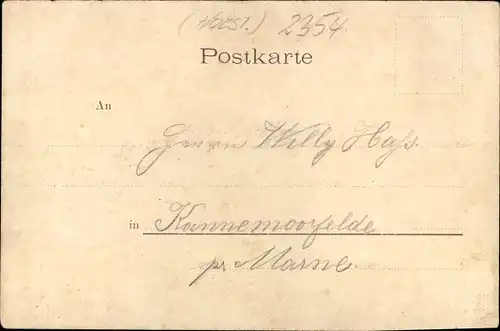 (Holst.) 2354
Postkarte
An
Herrn Willy Haß.
in Kannemoorfelde
pr Marne.